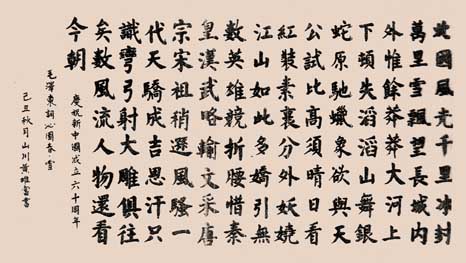 北國風光千里冰封
萬里雪飄望長城內
外惟餘莽莽大河上
下頓失滔滔山舞銀
蛇原馳蠟象欲與天
公試比高須晴日看
紅裝素裹分外妖嬈
江山如此多嬌引無
數英雄競折腰惜秦
皇漢武略輸文采唐
宗宋祖稍遜風騷一
代天驕成吉思汗只
識彎弓射大雕俱往
矣數風流人物還看
今朝
慶祝新中國成立六十周年
毛澤東詞沁園春雪
己丑秋月山川黃書